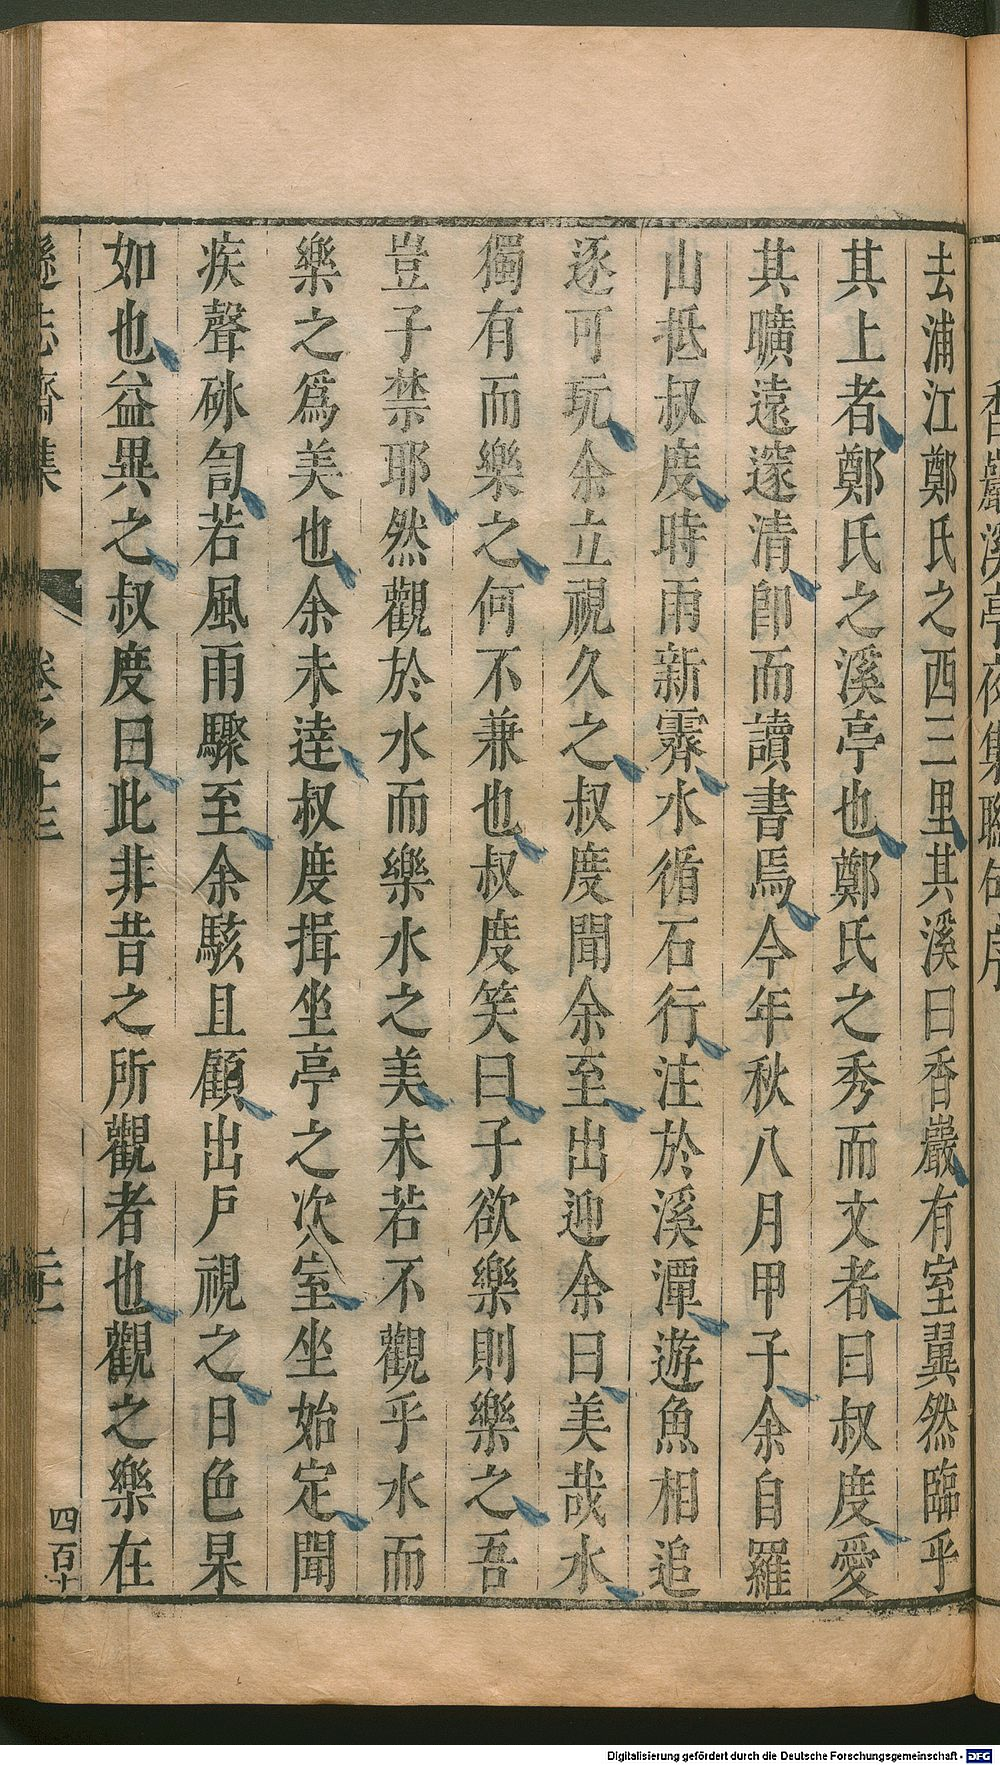 香巖溪亭夜集聯句序
去浦江鄭氏之西三里其溪曰香巖有室翼然臨乎
其上者鄭氏之溪亭也鄭氏之秀而文者曰叔度愛
其曠遠邃清卽而讀書焉今年秋八月甲子余自羅
山抵叔度時雨新霽水循石行注於溪潭遊魚相追
逐可玩余立視久之叔度聞余至出迎余曰美哉水
獨有而樂之何不兼也叔度笑曰子欲樂則樂之吾
豈子禁耶然觀於水而樂水之美未若不觀乎水而
樂之爲美也余未達叔度揖坐亭之次室坐始定聞
疾聲砯訇若風雨驟至余駭且顧出戶視之日色杲
如也益異之叔度曰此非昔之所觀者也觀之樂在
遜志齋集
卷之十三
四百十
Digitalisierung gefördert durch die Deutsche Forschungsgemeinschaft - DFG